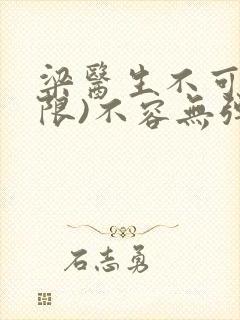 梁醫生不可
限)不容無強
石志勇